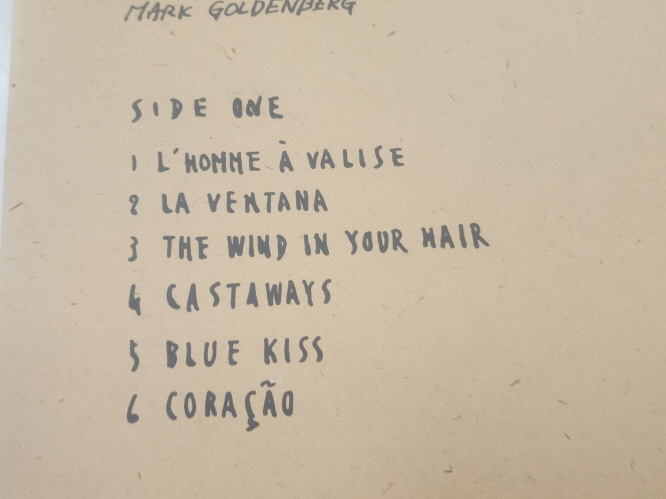 MARK GOLDENBERG
SIDE ONE
1 L'HOMME À VALISE
2 LA VENTANA
3 THE WIND IN YOUR HAIR
4 CASTAWAYS
5 BLUE KISS
6 CORAÇÃO